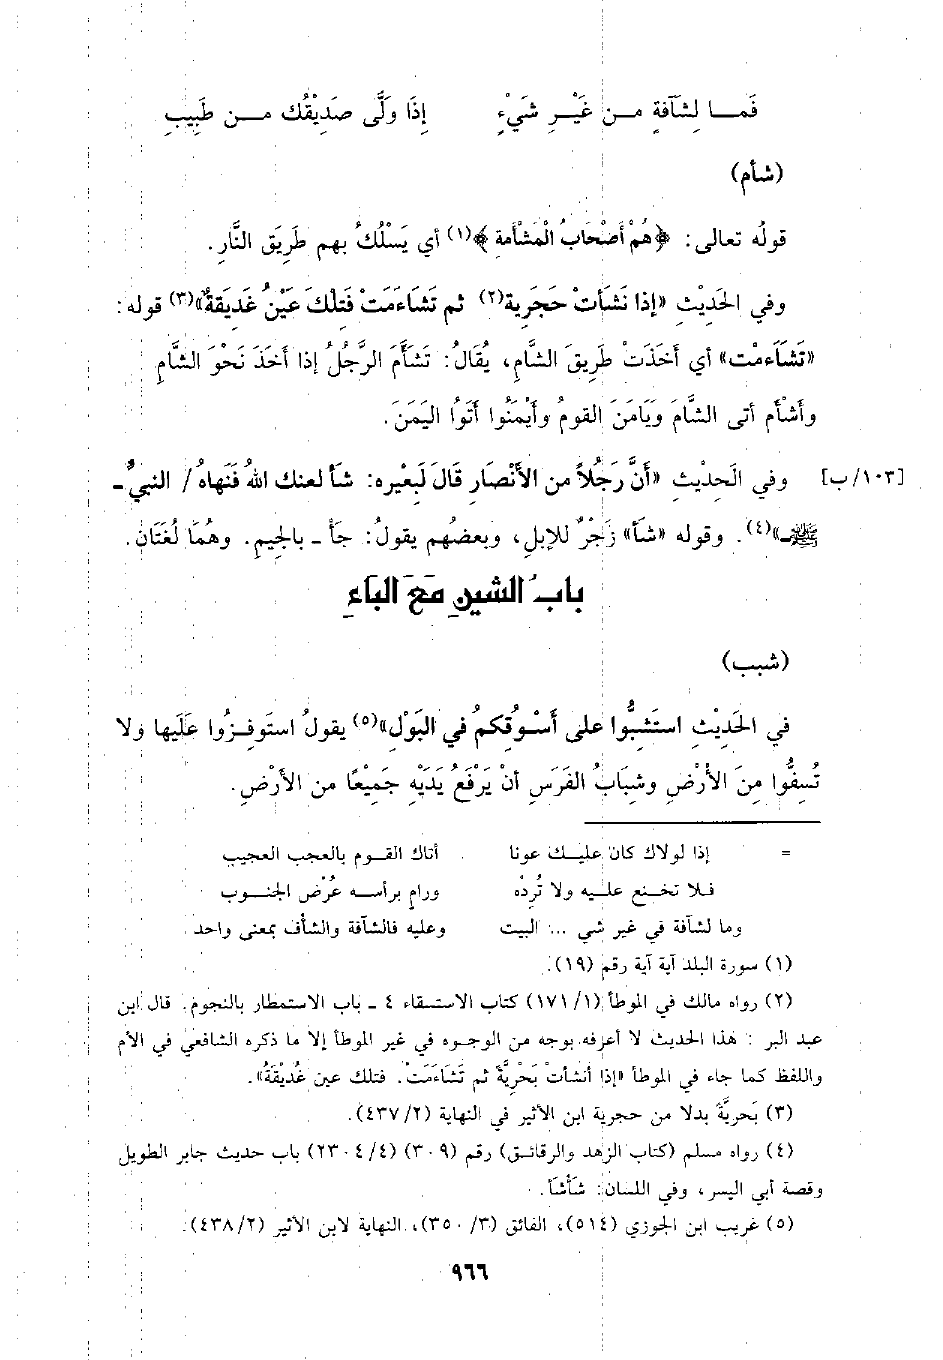 فَمـــا لِشَآفةٍ مـــن غَيْـــرِ شَيْءٍ إِذَا وَلَّى صَدِيْقُك مـــن طَبِيبِ
(شأم)
قولُه تعالى: ﴿هُمْ أَصْحَابُ المَشْأمة﴾(١) أي يَسْلُكُ بهم طَرِيَق النَّارِ.
وفي الحَدِيْثِ «إذا نَشَأتْ حَجَرية(٢) ثم تَشَاءَمَتْ فَتلْكَ عَيْن غَديَقةٌ»(٣) قوله:
«تَشَاَءمْت» أي أَخَذَتْ طَرِيقَ الشَّامِ، يُقَالُ: تَشَأَّمَ الرَّجلُ إذا أَخَذَ نَحْوَ الشَّامِ
وأَشْأم أتى الشَّامَ وَيَامَنَ القومُ وأَيْمَنُوا أَتَوُا اليَمَنَ.
[١٠٣/ب] وفي الَحدِيْثِ «أنَّ رَجُلاً من الأَنْصَارِ قَالَ لَبعْيره: شَأ لعنك اللهُ فَنَهاهُ/ النبيُّ ـ
ﷺ ـ»(٤). وقوله «شَأ» زَجْرٌ للإبلِ، وبعضُهم يقولُ: جَأ ـ بالجيمِ. وهُما لُغَتَان.
بابُ الشينِ مَعَ البَاءِ
(شبب)
في الحَدِيْثِ استَشِبُّوا على أَسْوُقكمُ في البَوْل»(٥) يقولُ استَوفِـزُوا عَلَيها ولا
تُسِفُّوا مِنَ الأَرْضِ وشِبَابُ الفَرَسِ أنْ يَرْفَعُ يَدَيْهِ جَمِيْعًا من الأَرْضِ.
= إذا لولاك كان عليـك عونا أتاك القـوم بالعجب العجيب
فـلا تخنـع عليـه ولا تُردْه ورامٍ برأسـه عُرْض الجنـوب
وما لشآفة في غير شي ... البيت وعليه فالشآفة والشأف بمعنى واحد
(١) سورة البلد آية آية رقم (١٩).
(٢) رواه مالك في الموطأ (١٧١/١) كتاب الاستسقاء ٤ ـ باب الاستمطار بالنجوم. قال ابن
عبد البر : هذا الحديث لا أعرفه بوجه من الوجـوه في غير الموطأ إلا ما ذكره الشافعي في الأم
واللفظ كما جاء في الموطأ «إذا أنشأتْ بَحْرِيَّةً ثم تَشَاءَمَتْ. فتلك عين غُديقَةُ».
(٣) بَحريَّةُ بدلا من حجرية ابن الأثير في النهاية (٤٣٧/٢).
(٤) رواه مسلم (كتاب الزهد والرقائـق) رقم (٣٠٩) (٢٣٠٤/٤) باب حديث جابر الطويل
وقصة أبي اليسر، وفي اللسان: شَأشَأ.
(٥) غريب ابن الجوزي (٥١٤)، الفائق (٣/ ٣٥٠)، النهاية لابن الأثير (٤٣٨/٢).
٩٦٦